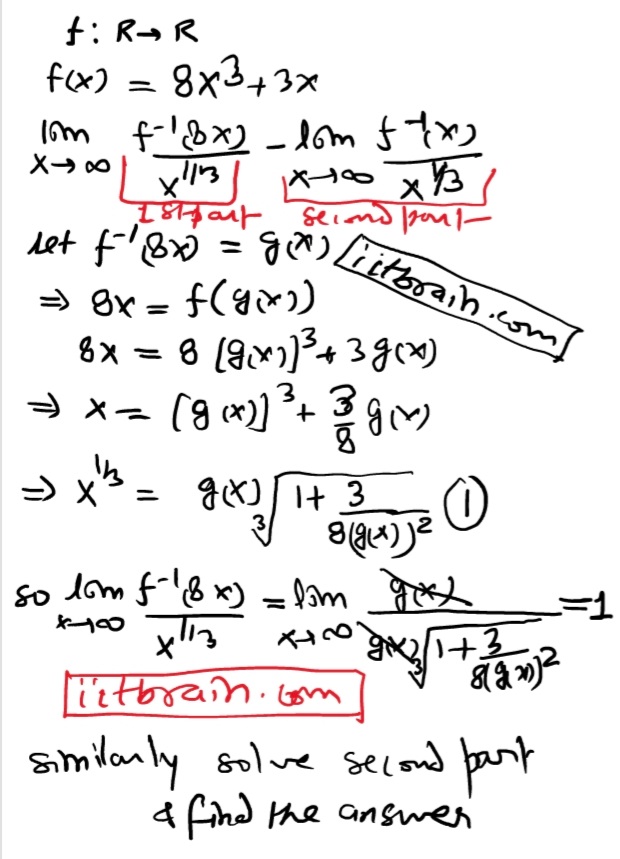 f: R→R
f(x) = 8x³+3x
lim x→∞ f⁻¹(8x)/x^(1/3) - lim x→∞ f⁻¹(x)/x^(1/3)
1st part second part
let f⁻¹(8x) = g(x) iitbrain.com
⇒ 8x = f(g(x))
8x = 8 [g(x)]³+ 3 g(x)
⇒ x = [g(x)]³ + 3/8 g(x)
⇒ x^(1/3) = g(x) ∛(1+ 3/(8(g(x))²) ①
so lim x→∞ f⁻¹(8x)/x^(1/3) = lim x→∞ g(x)/(g(x) ∛(1+ 3/(8(g(x))²)) =1
iitbrain.com
similarly solve second part
& find the answer